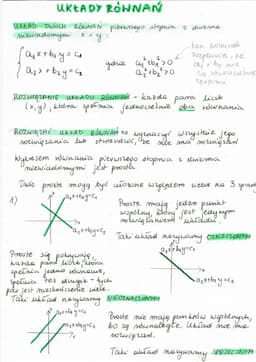 UKŁADY RÓWNAŃ
UKŁAD DWÓCH RÓWNAŃ pierwszego stopnia z dwiema
niewiadomymi x i y:
a₁x + b₁y = c₁
a₂x + b₂y = c₂
gdzie a₁²+b₁²>0
a₂²+b₂²>0
ten warunek
zapewnia, że
a₁ i b₁ nie
są równocześnie
zerami
ROZWIĄZANIE UKŁADU RÓWNAŃ - każda para liczb
(x, y), która spełnia jednocześnie oba równania
ROZWIĄZAĆ UKŁAD RÓWNAŃ to wyznaczyć wszystkie jego
rozwiązania lub stwierdzić, że nie ma rozwiązań
Wykresem równania pierwszego stopnia z dwiema
niewiadomymi jest prosta
Dwie proste mogą być ułożone względem siebie na 3 sposoby
1)
a₁x+b₁y=c₁
a₂x+b₂y=c₂
Proste mają jeden punkt
wspólny, który jest jedynym
rozwiązaniem układu.
Taki układ nazywamy OZNACZONYM
Proste się pokrywają,
każda para liczb, która
spełnia jedno równanie,
spełnia też drugie - tych
par jest nieskończenie wiele.
Taki układ nazywamy NIEOZNACZONYM
a₁x+b₁y=c₁
a₂x+b₂y=c₂
a₁x+b₁y=c₁
a₂x+b₂y=c₂
Proste nie mają punktów wspólnych,
bo są równoległe. Układ nie ma
rozwiązań.
Taki układ nazywamy SPRZECZNYM